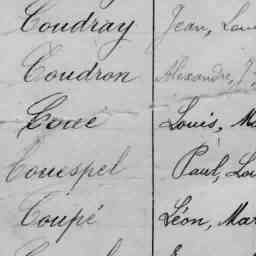 Coudray Jean, Lou
Coudron Alexandre, J
Coué Louis, Ma
Couespel Paul, Lou
Coupé Léon, Mar